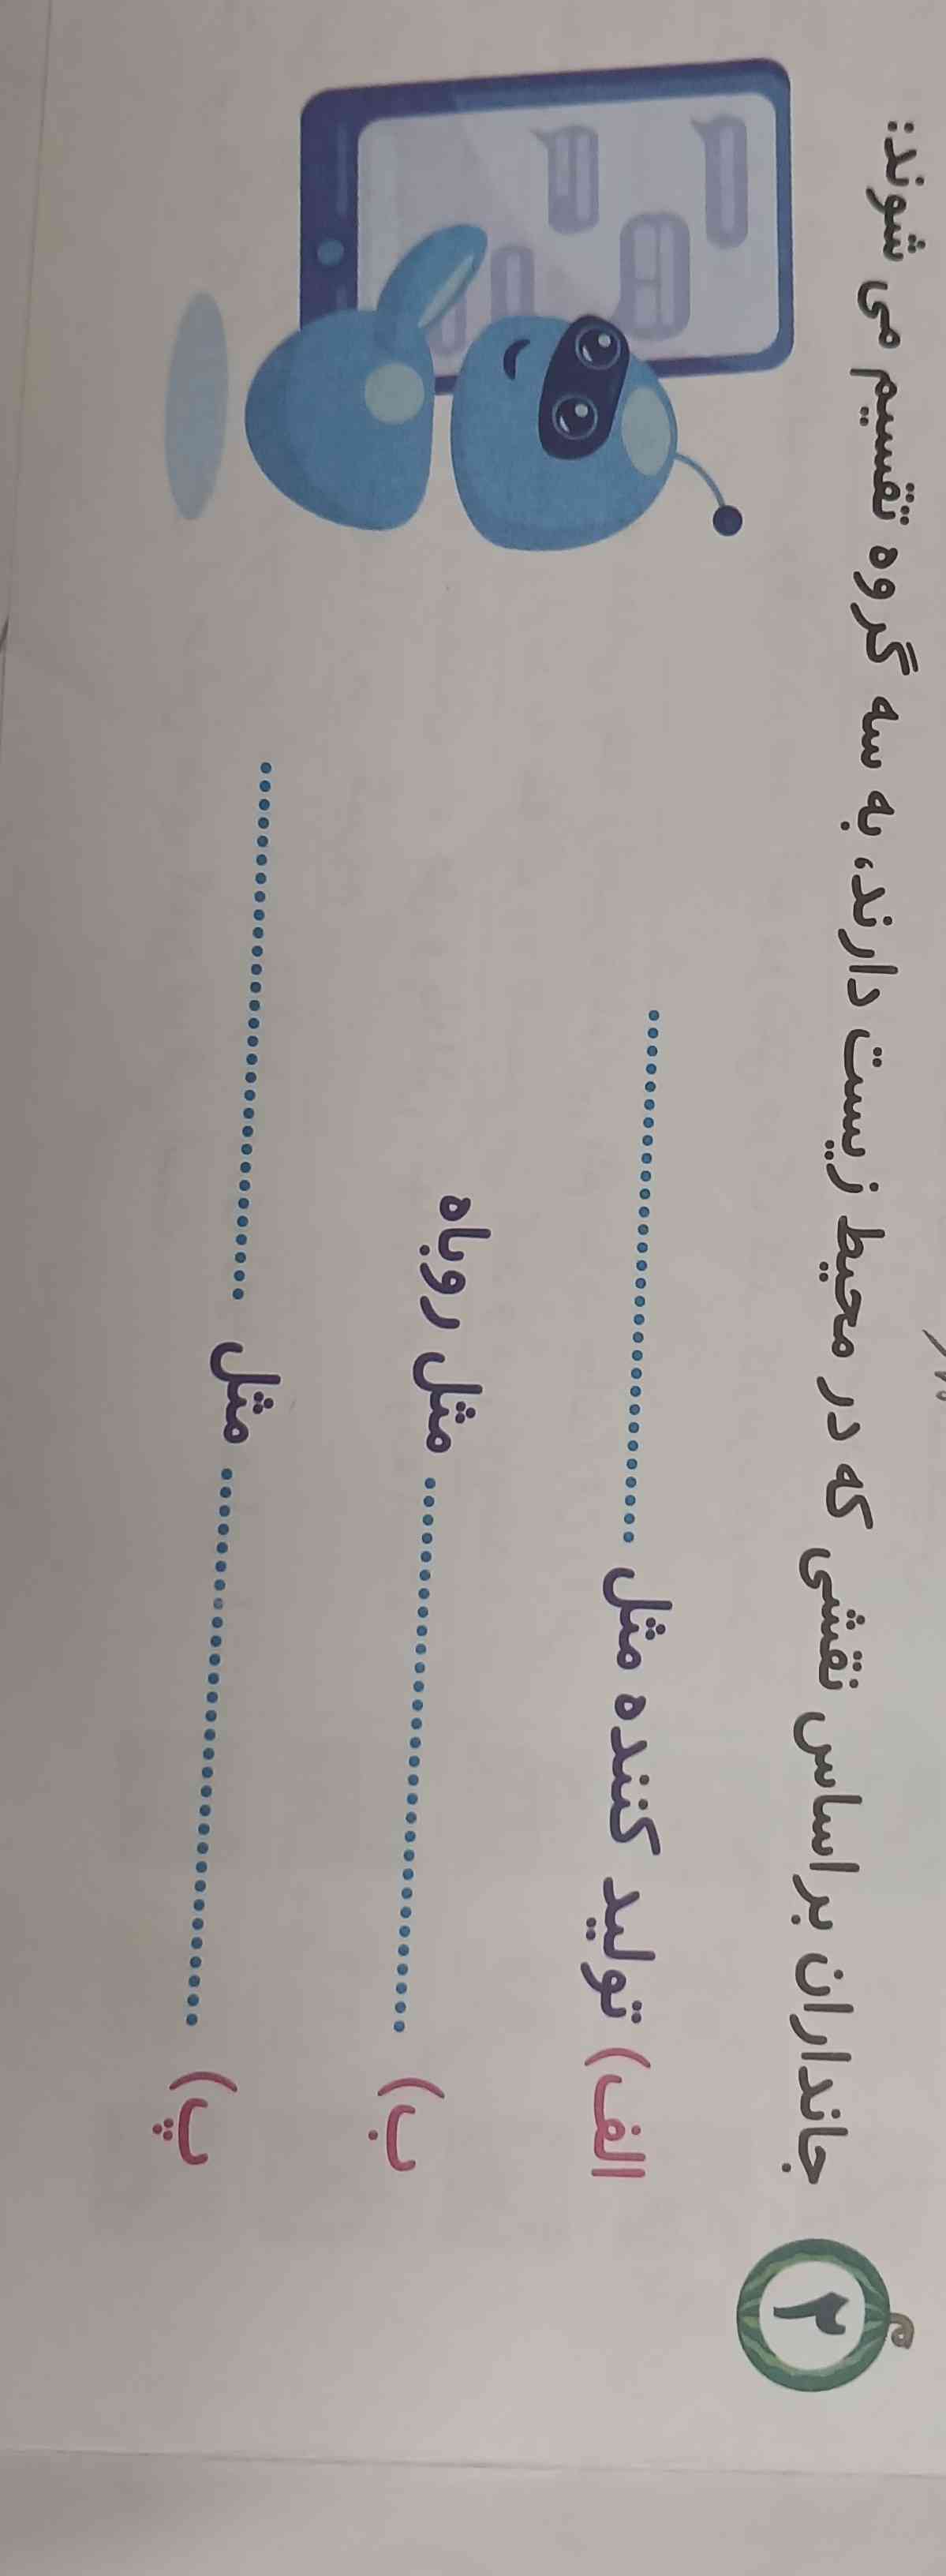 ۲ جانداران براساس نقشی که در محیط زیست دارند، به سه گروه تقسیم می شوند:
الف) تولید کننده مثل ..............................
ب) .............................. مثل روباه
پ) .............................. مثل ..............................